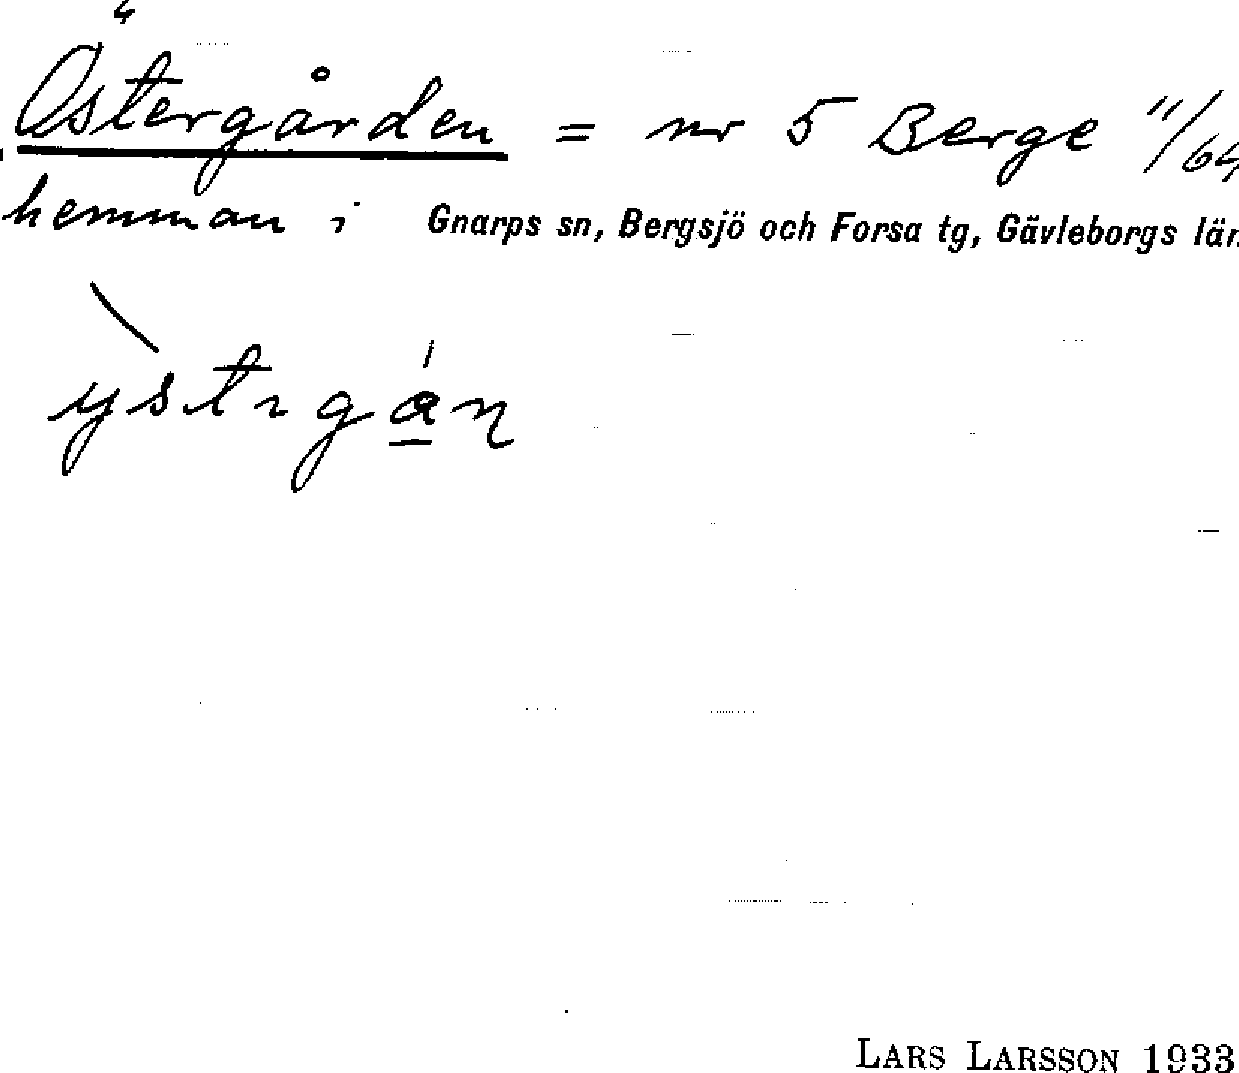 Östergården = nr 5 Berge 11/64
hemman i Gnarps sn, Bergsjö och Forsa tg, Gävleborgs län
ystrgån
LARS LARSSON 1933